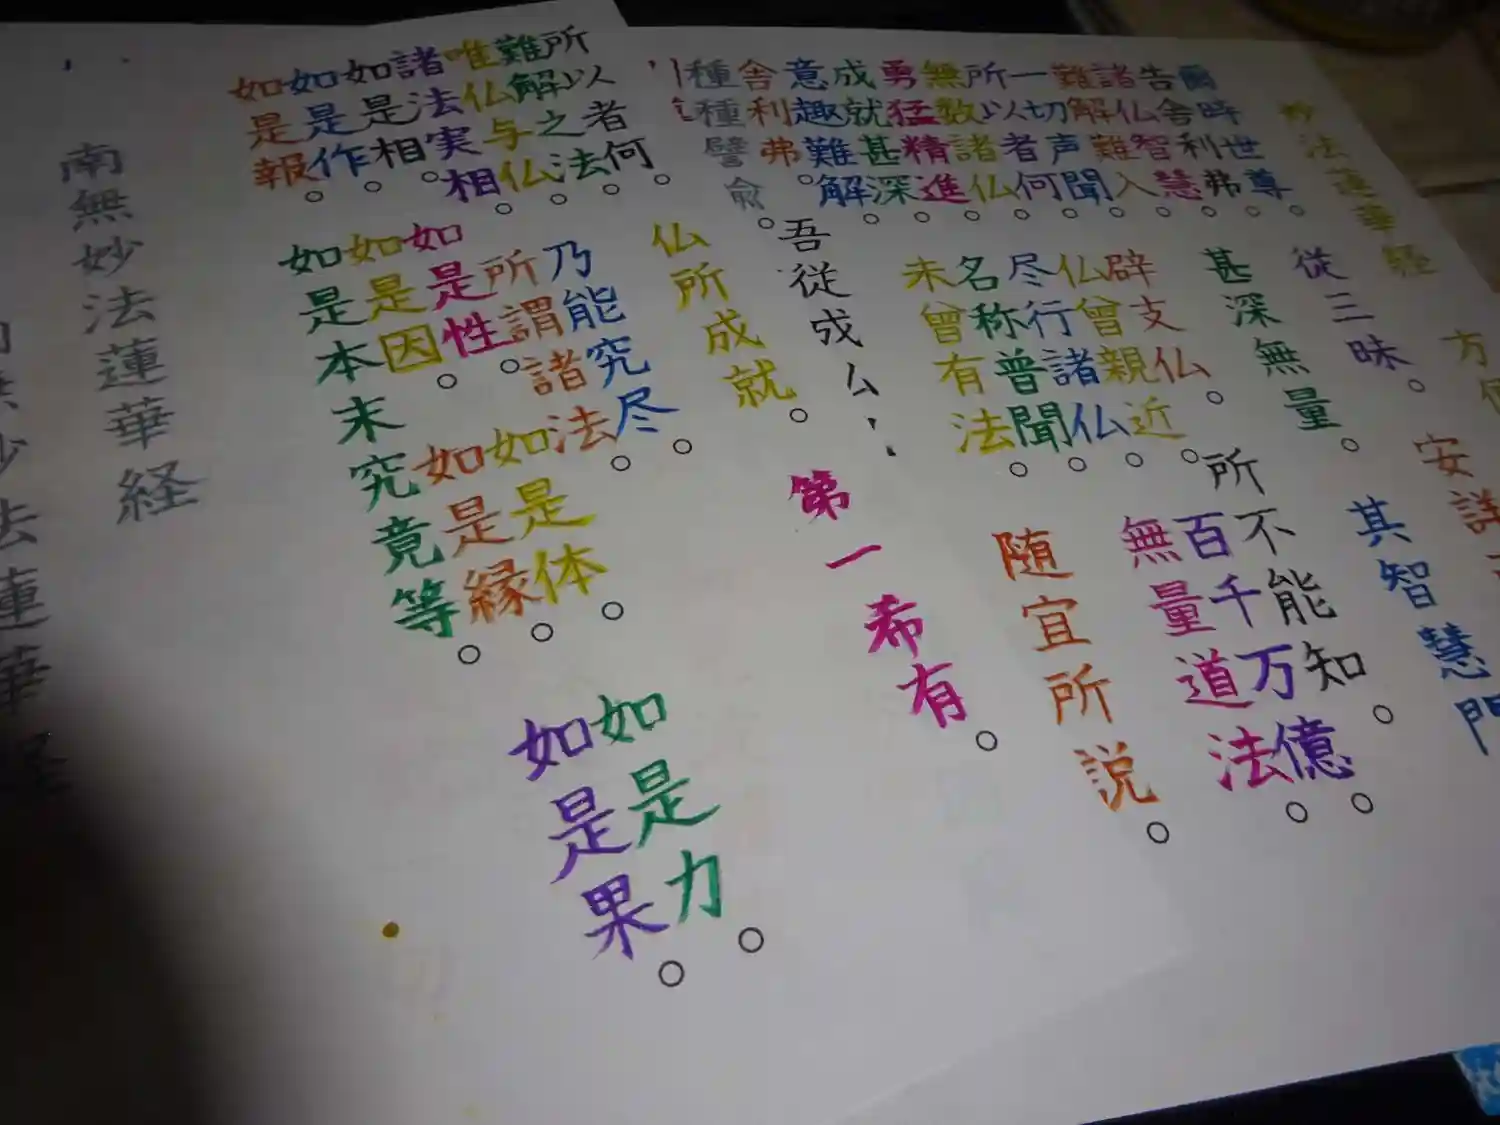 妙法蓮華経 方
爾時世尊。従三昧。安詳
告舎利弗。諸仏智慧。甚深無量。其智慧門
難解難入。
一切声聞。辟支仏。所不能知。
所以者何。仏曾親近。百千万億。
無数諸仏。尽行諸仏。無量道法。
勇猛精進。名称普聞。
成就甚深。未曾有法。随宜所説。
意趣難解。
舎利弗。吾従成
種種譬喩。
仏所成就。第一希有。
所以者何。
難解之法。
唯仏与仏。乃能究尽。
諸法実相。所謂諸法。
如是相。如是性。如是体。如是力。
如是作。如是因。如是縁。如是果。
如是報。如是本末究竟等。
南無妙法蓮華経
法蓮華経